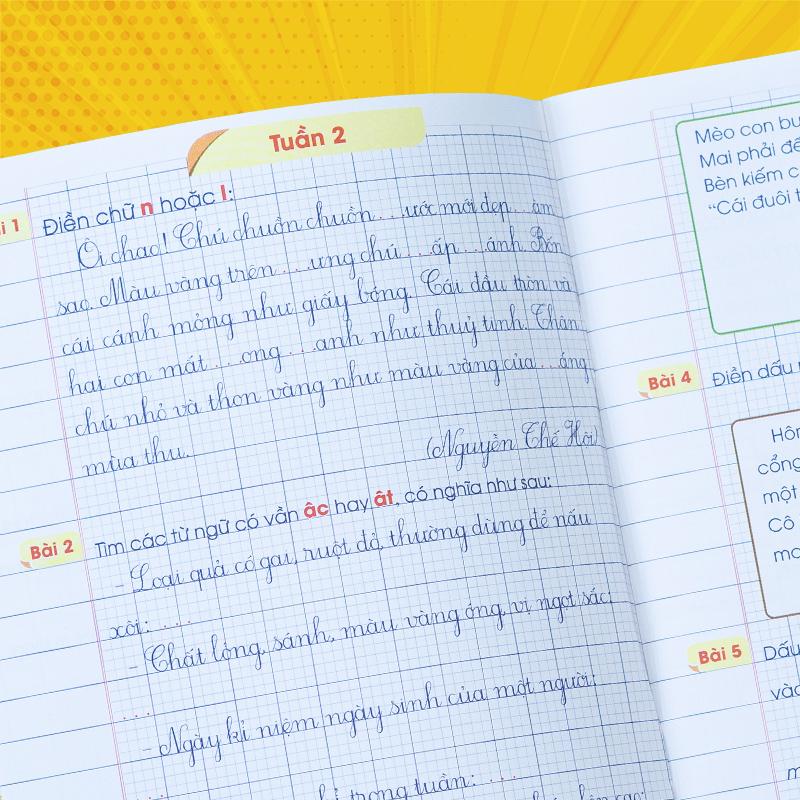 Tuần 2
i 1 Điền chữ n hoặc l:
Ôi chao! Chú chuồn chuồn ...ước mới đẹp ...àm
sao. Màu vàng trên ...ưng chú ...ấp ...ánh. Bốn
cái cánh mỏng như giấy bóng. Cái đầu tròn và
hai con mắt ...ong ...anh như thuỷ tinh. Thân
chú nhỏ và thon vàng như màu vàng của ...ắng
mùa thu.
(Nguyễn Thế Hội)
Bài 2 Tìm các từ ngữ có vần âc hay ât, có nghĩa như sau:
- Loại quả có gai, ruột đỏ, thường dùng để nấu
xôi: ...
- Chất lỏng, sánh, màu vàng óng, vị ngọt sắc:
...
- Ngày kỉ niệm ngày sinh của một người:
...
trong tuần: ...
Mèo con bu
Mai phải đế
Bèn kiếm c
"Cái đuôi t
Bài 4 Điền dấu
Hôn
cổng
một
Cô
mo
Bài 5 Dấu
vào
m